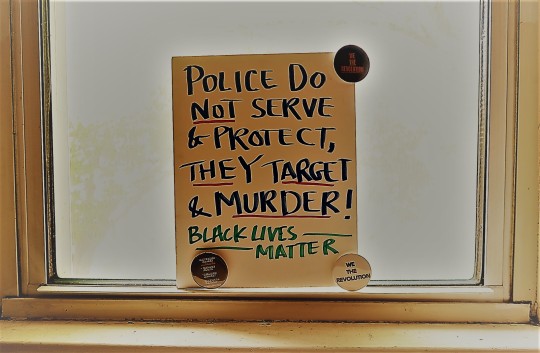 POLICE DO
NOT SERVE
& PROTECT,
THEY TARGET
& MURDER!
BLACK LIVES
MATTER
WE
THE
REVOLUTION
WE
THE
REVOLUTION